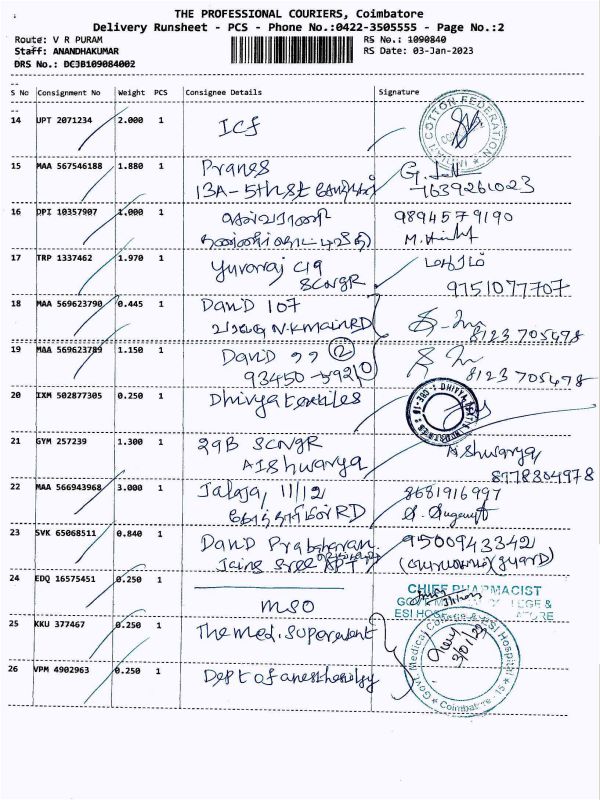 THE PROFESSIONAL COURIERS, Coimbatore
Delivery Runsheet - PCS - Phone No.:0422-3505555 - Page No.:2
Route: V R PURAM
RS No.: 1090840
Staff: ANANDHAKUMAR
RS Date: 03-Jan-2023
DRS No.: DCJB109084002
S No Consignment No Weight PCS Consignee Details Signature
14 UPT 2071234 2.000 1 ICF
COTTON FEDERATION
15 MAA 567546188 1.880 1 Pranes
13A-5th St
1639261023
16 DPI 10357907 1.000 1 செல்வராணி 9894579190
17 TRP 1337462 1.970 1 Yuvaraj C19
SCNGR 9751077707
18 MAA 569623790 0.445 1 David 107
N.K main RD 8123705478
19 MAA 569623789 1.150 1 David 99 2
93450-59210 8123705478
20 IXM 502877305 0.250 1 Dhivya textiles
21 GYM 257239 1.300 1 29B SCNGR Aishwarya
AIShwarya 8978864978
22 MAA 566943968 3.000 1 Jalaja, 11/12 8681916997
RD
23 SVK 65068511 0.840 1 David Prabaharan 9500943342
Jains Sree APT
24 EDQ 16575451 0.250 1
MSO
CHIEF PHARMACIST
25 KKU 377467 0.250 1 The med. Superendent
26 VPM 4902963 0.250 1 Dept of anesthesilogy
Govt. Medical College & ESI Hospital
Coimbatore - 15